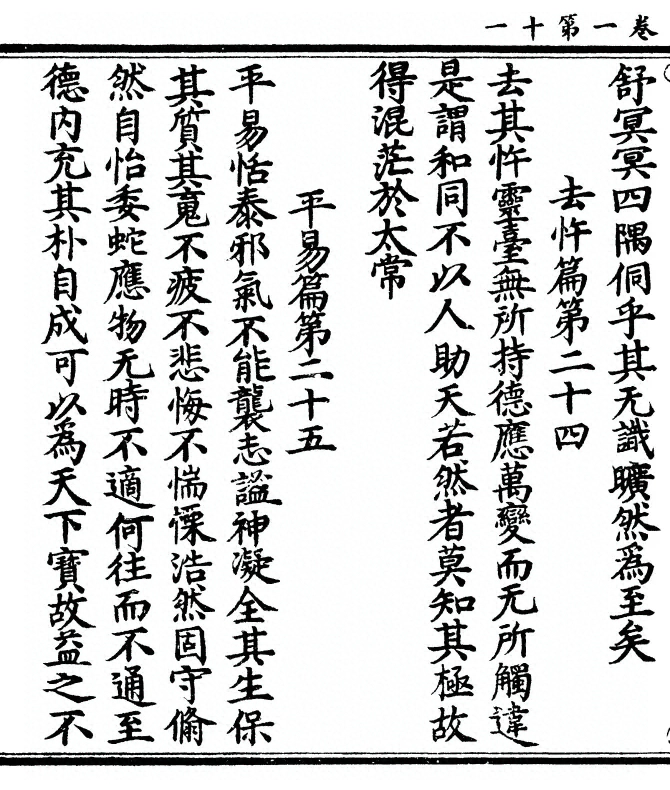 卷一第十一
舒冥冥四隅侗乎其无識曠然爲至矣
去忤篇第二十四
去其忤靈臺無所持德應萬變而无所觸違
是謂和同不以人助天若然者莫知其極故
得混茫於太常
平易篇第二十五
平易恬泰邪氣不能襲志謐神凝全其生保
其質其䰟不疲不悲悔不惴慄浩然固守翛
然自怡委蛇應物无時不適何往而不通至
德内充其朴自成可以爲天下寶故益之不